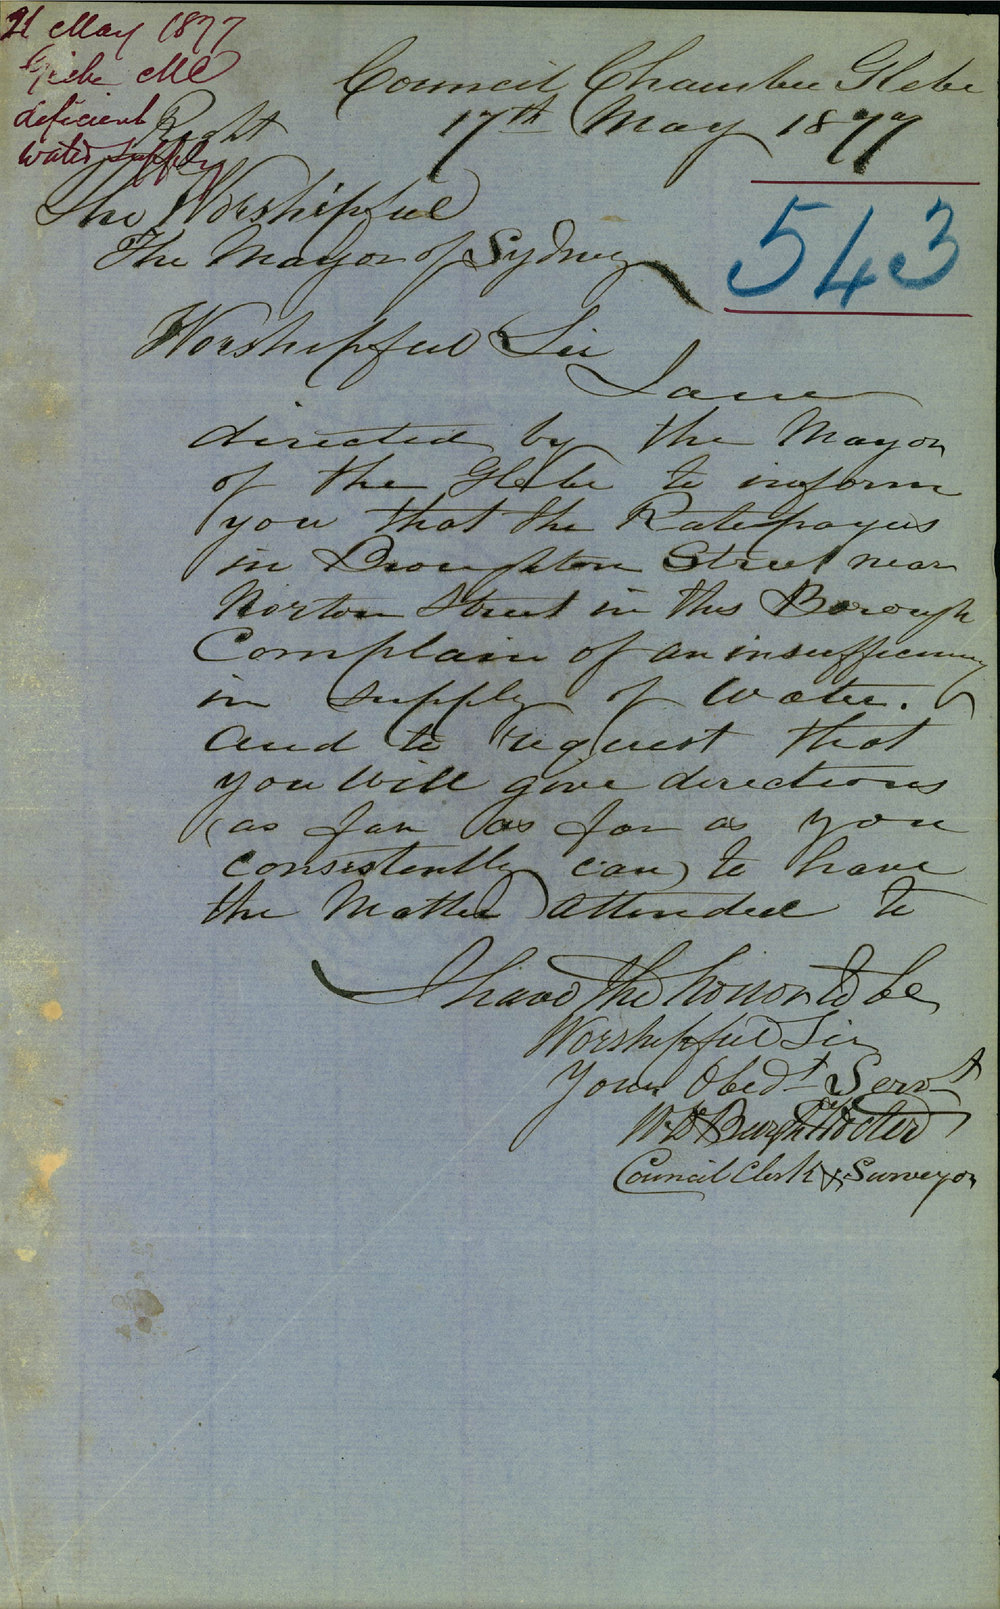 21 May 1877
Glebe MC
deficient
water supply
Council Chamber Glebe
17th May 1877
543
Right
The Worshipful
The Mayor of Sydney
Worshipful Sir
I am
directed by the Mayor
of the Glebe to inform
you that the Ratepayers
in Broughton Street near
Norton Street in this Borough
Complain of an insufficiency
in supply of Water.
and to request that
you will give directions
(as far as far as you
consistently can) to have
the Matter attended to
I have the honor to be
Worshipful Sir
Your Obedt Servt
Council Clerk & Surveyor